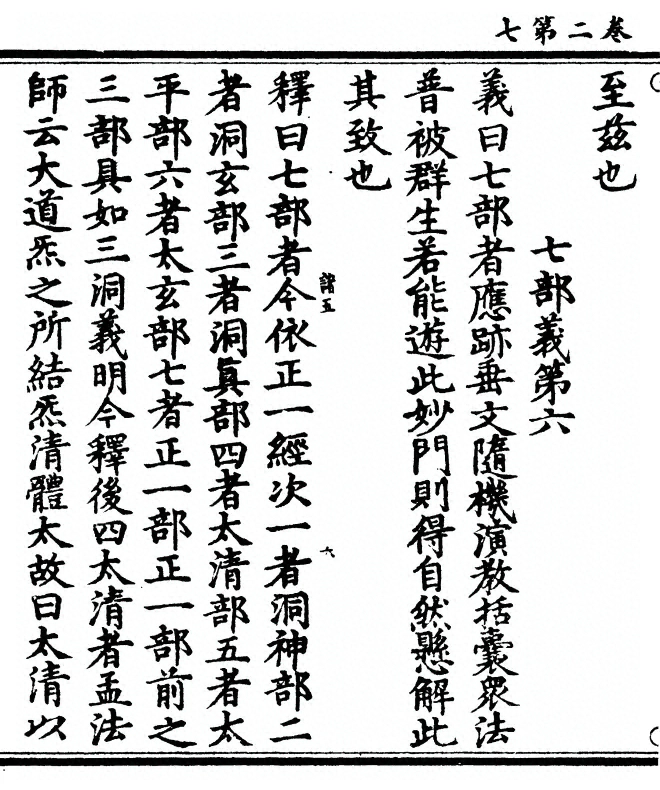 卷二第七
至茲也
七部義第六
義曰七部者應跡垂文隨機演教括囊衆法
普被群生若能遊此妙門則得自然懸解此
其致也
釋曰七部者今依正一經次一者洞神部二
諸五
六
者洞玄部三者洞真部四者太清部五者太
平部六者太玄部七者正一部正一部前之
三部具如三洞義明今釋後四太清者孟法
師云大道炁之所結炁清體太故曰太清以